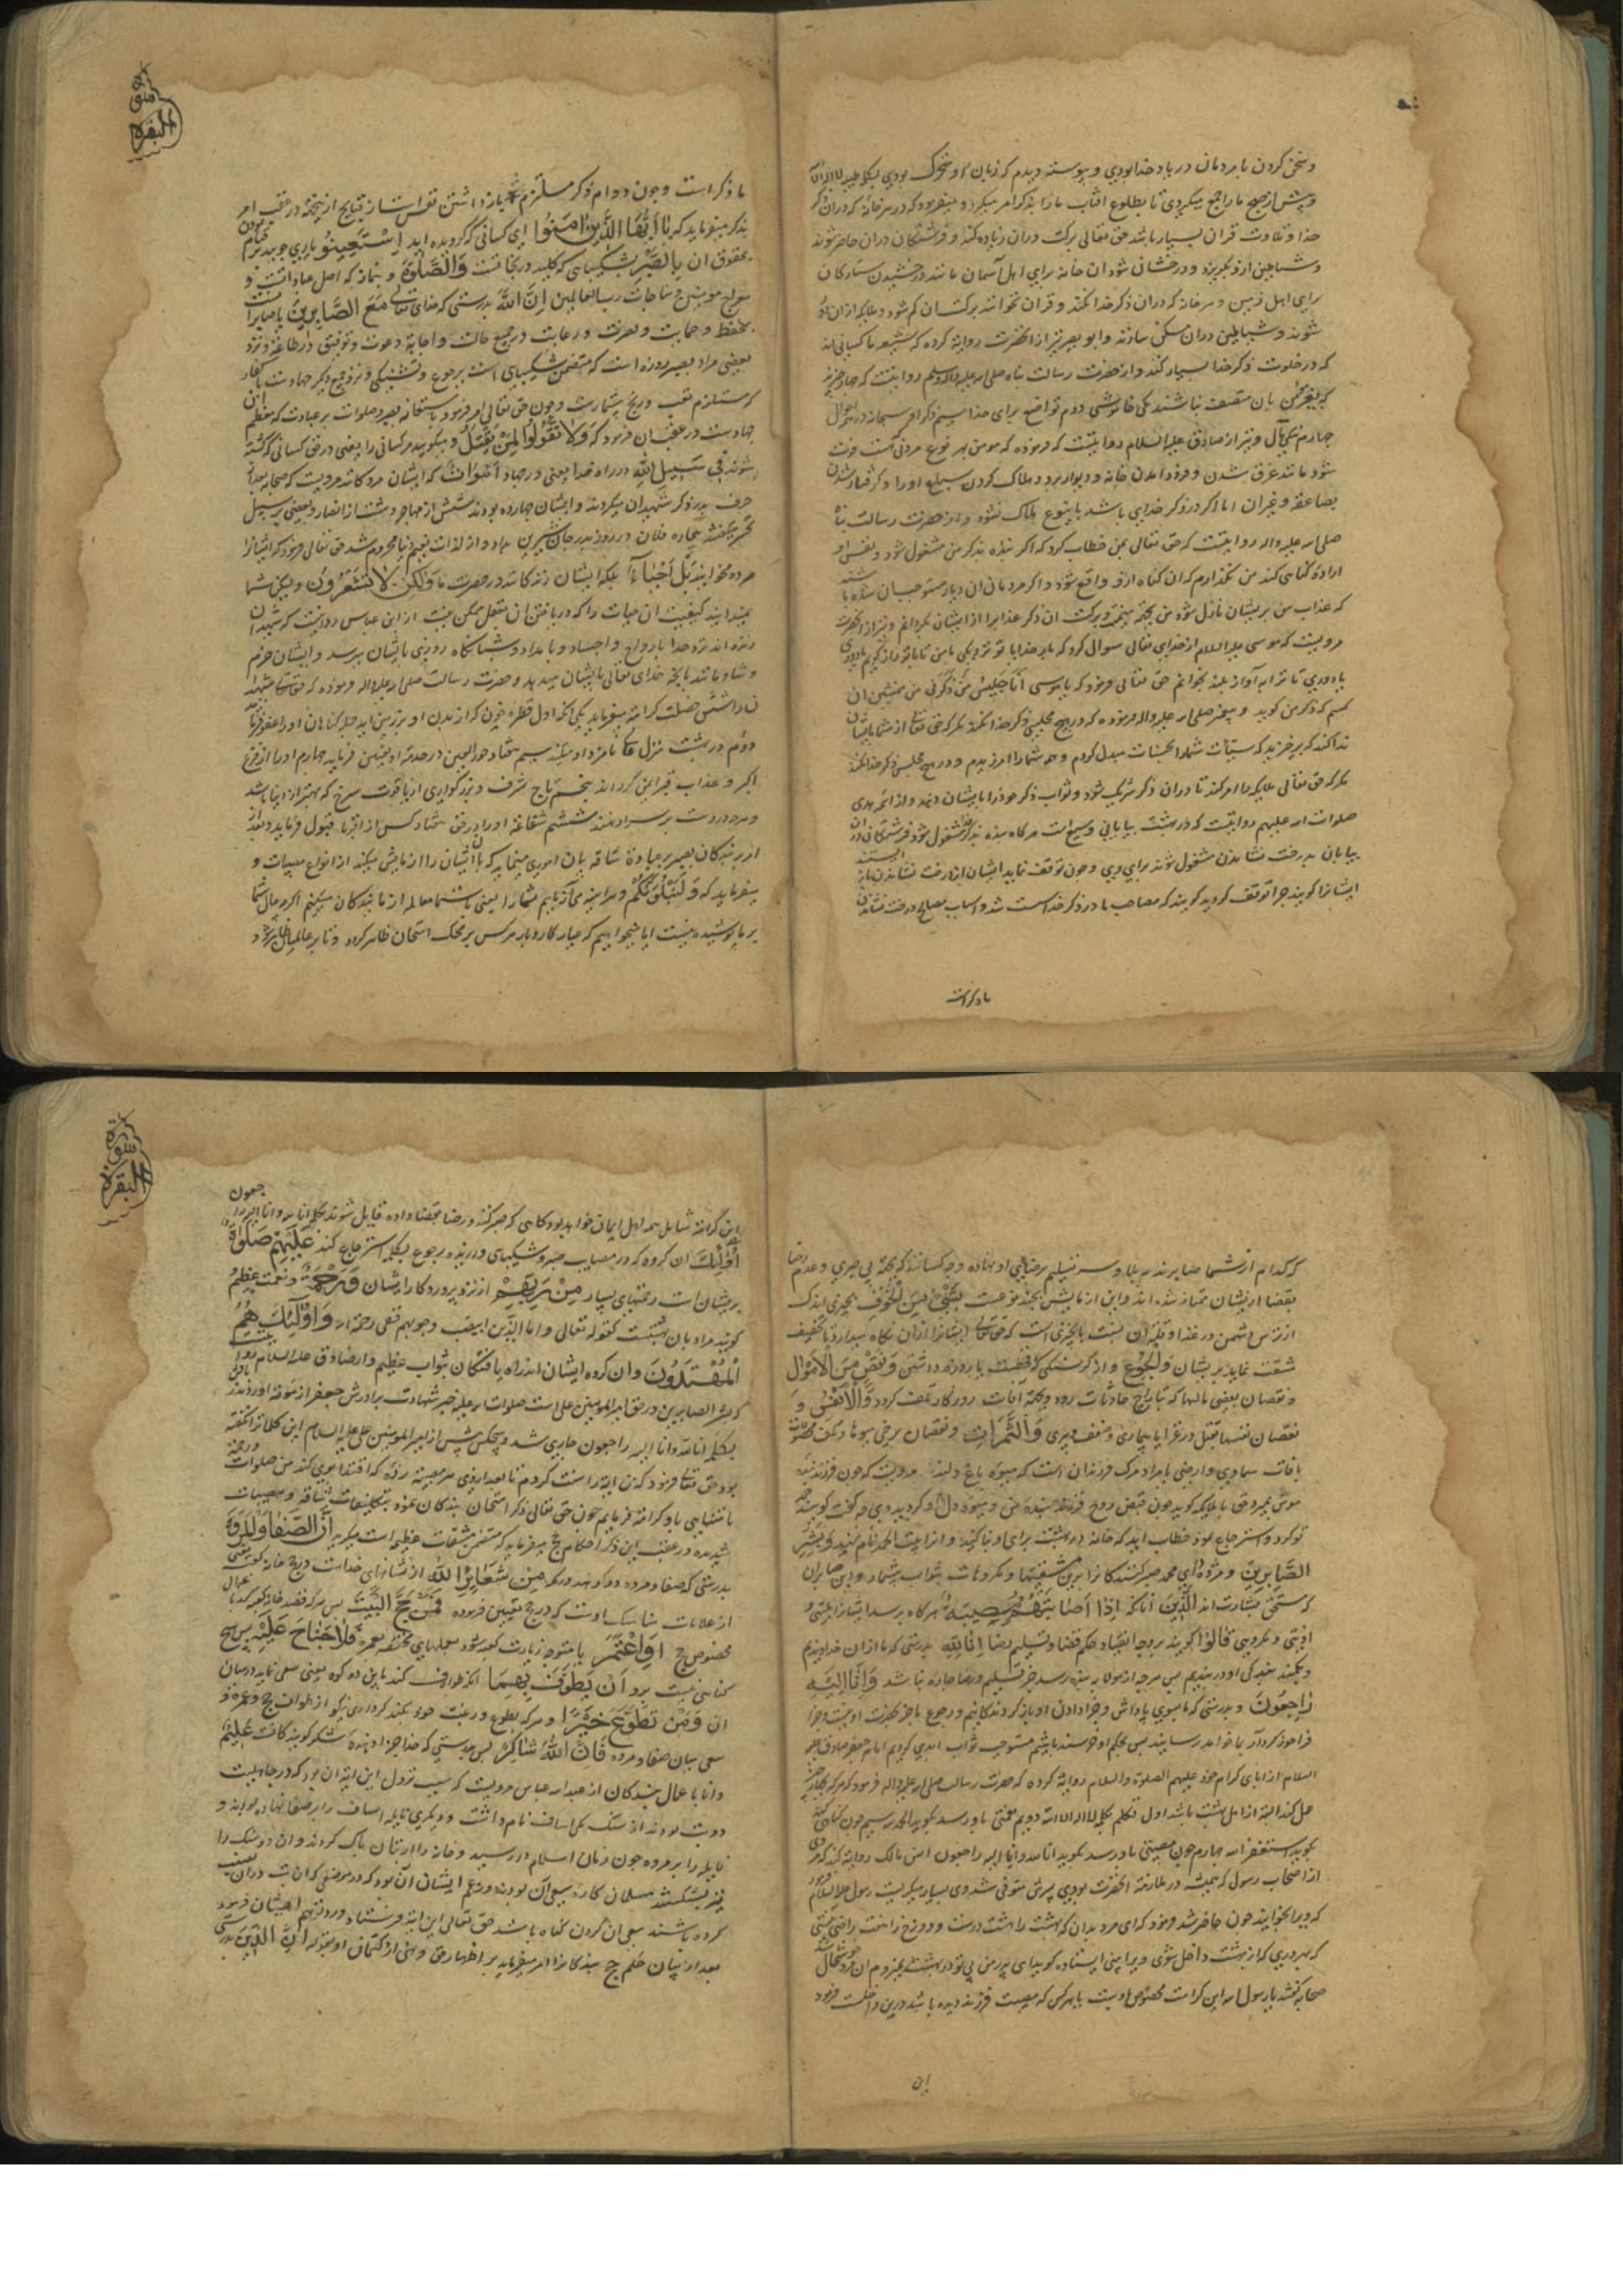 و سخن کردن با مردمان در یاد خدا بودی و پیوسته دیدم که زبان او متحرک بودی بکلمه طیبه لا اله الا الله
و پیش از صبح ما را جمع میکردی تا بطلوع افتاب ما را بذکر امر میکرد و میفرمود که در هر خانه که در ان ذکر
خدا و تلاوت قران بسیار باشد حق تعالی برکت در ان زیاده کند و فرشتکان در ان حاضر شوند
و شیاطین ازو بگریزد و درخشان شود ان خانه برای اهل آسمان مانند درخشیدن ستارکان
برای اهل زمین و هر خانه که در ان ذکر خدا نکند و قران نخوانند برکت ان کم شود و ملایکه از ان دور
شوند و شیاطین در ان مسکن سازند و ابو بصیر نیز از انحضرت روایة کرده که شیعه ما کسانی اند
که در خلوت ذکر خدا بسیار کنند و از حضرت رسالت پناه صلی الله علیه واله وسلم روایتست که چهار چیز
که بغیر مؤمن بان متصف نباشند یکی خاموشی دوم تواضع برای خدا سیم ذکر او سبحانه در همه احوال
چهارم نیکی مآل و نیز از صادق علیه السلام روایتست که فرموده که مومن بهر نوع مردنی که است فوت
شود مانند غرق شدن و فرود امدن خانه و دیوار برو و هلاک کردن سباع او را و کرفتار شدن
بصاعقه و غیر ان اما اکر در ذکر خدای باشد باینوع هلاک نشود و از حضرت رسالت پناه
صلی الله علیه واله روایتست که حق تعالی بمن خطاب کرد که اکر بنده بذکر من مشغول شود و نفس او
ارادهٔ کناهی کند من نکذارم که ان کناه ازو واقع شود و اکر مردمان ان دیار مستوجب ان شده باشند
که عذاب من بریشان نازل شود من بجهة پیغمبر و برکت ان ذکر عذاب را از ایشان بکردانم و نیز از انحضرت
مرویست که موسی علیه السلام از خدای تعالی سوال کرد که بار خدایا تو نزدیکی بامن تا با تو راز کویم یا دوری
یا دوری تا ترا به آواز بلند بخوانم حق تعالی فرمود که یا موسی اَنَا جَلِیسُ مَن ذَکَرَنی من همنشین ان
کسیم که ذکر من کوید و پیغمبر صلی الله علیه واله فرموده که در هیچ مجلسی ذکر خدا نکنند مکر که حق تعالی از سما بایشان
ندا کند که برخیزید که سیئات شما را بحسنات مبدل کردم و همه شما را امرزیدم و در هیچ مجلس ذکر خدا نکنند
مکر که حق تعالی ملایکه را امر کند تا در ان ذکر شریک شود و ثواب ذکر خود را بایشان دهند و از ائمه هدی
صلوات الله علیهم روایتست که در بهشت بیابانی وسیع است هر کاه بنده بذکر خدا مشغول شود فرشتکان در ان
بیابان بدرخت نشاندن مشغول شوند برای وی و چون توقف نماید ایشان از درخت نشاندن باز ایستند
ایشانرا کویند چرا توقف کردید کویند که مصاحب ما در ذکر خدا سست شد و اسباب مصالح درخت نشاندن
ما ذکر است
سورة البقره
ما ذکر است و چون دوام ذکر مستلزم باز داشتن نفس است از قبایح از اینجهة در عقب امر
بذکر میفرماید که یَا اَیُّهَا الَّذِینَ اٰمَنُوا ای کسانی که کرویده اید اِسْتَعِینُوا یاری جویید
بحقوق ان بِالصَّبْرِ بشکیبایی که کلید در نجاتست وَالصَّلٰوةِ و بنماز که اصل عباداتست و
معراج مومنین و مناجات رب العالمین اِنَّ اللهَ بدرستی که خدای تعالی مَعَ الصَّابِرِینَ با صابرانست
بحفظ و حمایت و نصرت و رعایت در جمیع حالت و اجابة دعوت و توفیق در طاعة و نزد
بعضی مراد بصبر روزه است که متضمن شکیبایی است بر جوع و تشنکی و نزد جمع دیکر جهاد است با کفار
که مستلزم تعب و رنج بیشمارست و چون حق تعالی امر فرمود باستعانه بصبر و صلوات بر عبادت که معظم ان
جهادست در عقب ان فرمود که وَلَا تَقُولُوا لِمَنْ یُقْتَلُ و میکویید مر کسانی را یعنی در حق کسانی که کشته
شوند فِی سَبِیلِ اللهِ در راه خدا یعنی در جهاد اَمْوَاتٌ که ایشان مردکانند مرویست که صحابه بعد از
حرف بدر ذکر شهیدان میکردند و ایشان چهارده بودند شش از مهاجر و هشت از انصار و بعضی بر سبیل
تحسر میکفتند بیچاره فلان در روز بدر جان شیرین بداد و از لذات نعیم دنیا محروم شد حق تعالی فرمود که ایشانرا
مرده مخوانید بَلْ اَحْیَاءٌ بلکه ایشان زنده کانند در حضرت ما وَلٰکِنْ لَا تَشْعُرُونَ ولیکن شما
نمیدانید کیفیت ان حیات را که دریافتن ان بعقل ممکن نیست از ابن عباس روایتست که شهیدان
زنده اند نزد خدا بارواح و اجساد و بامداد و شبانکاه روزی بایشان میرسد و ایشان خرم
و شادمانند بانچه خدای تعالی بایشان میدهد و حضرت رسالت صلی الله علیه واله فرموده که حق تعالی شهید
را شش خصلت کرامة میفرماید یکی انکه اول قطره خون که از بدن او بر زمین اید جمله کناهان او را عفو فرماید
دوم در بهشت منزل های نامزد او میکند سیم هفتاد حور العین در خدمة او تعیین فرماید چهارم او را از فزع
اکبر و عذاب قبر ایمن کرداند پنجم تاج شرف و بزرکواری از یاقوت سرخ که بهتر از دنیا باشد
و هر چه دروست بر سر او نهند ششم شفاعة او را در حق هفتاد کس از اقربا قبول فرماید و بعد
از امر بندکان بصبر بر عبادة شاقه بیان اموری مینماید که با ان ایشان را ازمایش میکند از انواع مصیبات و
میفرماید که وَ لَنَبْلُوَنَّکُمْ و هر اینه می آزماییم شما را یعنی با شما معامله ازمایندکان میکنیم اکرچه مآل شما
بر ما پوشیده نیست اما میخواهیم که عیار کار و بار هر کس بر محک امتحان ظاهر کردد و تا بر عالمیان ظاهر شود
که کدام از شما صابرند به بلا و سر تسلیم برضای الهی او نهاده و چه کسانند که بجهة بی صبری و عدم رضا
بقضا از ایشان ممتاز شده اند و این ازمایش بچند نوعست بِشَیْءٍ مِنَ الْخَوْفِ بچیزی اندک
از ترس دشمن در غذا و قلة ان نسبت بانچیزی است که حق تعالی ایشانرا از ان نکاه میدارد تا تخفیف
مشقت نماید بریشان وَالْجُوعِ و از کرسنکی که قحطست یا روزه داشتن وَنَقْصٍ مِنَ الْاَمْوَالِ
و نقصان بعضی مالها که بتاراج حادثات رود و بجهة آفات روزکار تلف کردد وَالْاَنْفُسِ و
نقصان نفسها بقتل در غزا یا بیماری و ضعف و پیری وَالثَّمَرَاتِ و نقصان برخی میوها و تلف محصولات
بافات سماوی و ارضی یا مراد مرک فرزندان است که میوه باغ دلند مرویست که چون فرزند بندهٔ
مومن بمیرد حق با ملایکه کوید چون قبض روح فرزند بندهٔ من و میوهٔ دل او کردید وی چه کفت کویند حمد
تو کرد و استرجاع نمود خطاب اید که خانهٔ در بهشت برای او بنا کنید و انرا بیت الحمد نام نهید وَ بَشِّرِ
الصَّابِرِینَ و مژده ده ای محمد صبر کنندکان را برین مشقتها و مکروهات بثواب بیشمار و این صابران
که مستحق بشارتند اَلَّذِینَ انانکه اِذَا اَصَابَتْهُمْ مُصِیبَةٌ هر کاه برسد ایشانرا بلیتی و
اذیتی و مکروهی قَالُوا کویند بر وجه انقیاد حکم قضا و تسلیم رضا اِنَّا لِلّٰهِ بدرستی که ما از ان خداوندیم
و بکمند بندکی او در بندیم پس هرچه از مولا به بنده رسد جز تسلیم و رضا چاره نباشد وَ اِنَّا اِلَیْهِ
رَاجِعُونَ و بدرستی که ما بسوی پاداش و جزا دادن او باز کردندکانیم و رجوع ما جز بحضرت او نیست و جزا
فراخور کردار بما خواهد رسانید پس بحکم او خرسند باشیم مستوجب ثواب ابدی کردیم امام جعفر صادق علیه
السلام از ابای کرام خود علیهم الصلوة والسلام روایة کرده که حضرت رسالت صلی الله علیه واله فرمود که هر که بچهار چیز
عمل کند البته از اهل بهشت باشد اول تکلم بکلمه لا اله الا الله دویم نعمتی باو رسد بکوید الحمد لله سیم چون کناهی کند
بکوید استغفر الله چهارم چون مصیبتی باو رسد بکوید انا لله وانا الیه راجعون انس مالک روایة کند که مردی
از اصحاب رسول که همیشه در ملازمة انحضرت بودی پسرش متوفی شد وی بسیار میکریست رسول علیه السلام فرمود
که ویرا بخوانید چون حاضر شد فرمود که ای مرد بدان که بهشت را هشت درست و دوزخ را هفت راضی نیستی
که بهر دری که از بهشت داخل شوی ویرا بینی ایستاده کوید ای پدر من بی تو در بهشت نمیروم ان مرد خوشحال شد
صحابه کفتند یا رسول الله این کرامت مخصوص اوست یا بهر کس که مصیبت فرزند دیده باشد درین داخلست فرمود
این
سورة البقره
این کرامة شامل همه اهل ایمان خواهد بود کاهی که صبر کنند و رضا بقضا داده قایل شوند بکلمه انا لله وانا الیه راجعون
اُولٰئِکَ ان کروه که در مصایب صبر و شکیبایی ورزیده رجوع بکلمه استرجاع کنند عَلَیْهِمْ صَلَوَاتٌ
بریشان است رحمتهای بسیار مِنْ رَبِّهِمْ از نزد پروردکار ایشان وَ رَحْمَةٌ و نعمت عظیم
کویند مراد بان بهشتست کقوله تعالی و اما الذین ابیضت وجوههم ففی رحمة الله وَ اُولٰئِکَ هُمُ
الْمُهْتَدُونَ و ان کروه ایشان اند راه یافتکان بثواب عظیم و از صادق علیه السلام روایتست
که بشر الصابرین در حق امیر المومنین علی است صلوات الله علیه چون خبر شهادت برادرش جعفر از موته اوردند
بکلمه انا لله وانا الیه راجعون جاری شد و هیچکس پیش از امیر المومنین علی علیه السلام این کلمات نکفته
بود حق تعالی فرمود که من این را سنت کردم تا بعد از وی هر مصیبت زده که اقتدا بوی کند من صلوات و رحمة
نامتناهی باو کرامة فرمایم چون حق تعالی ذکر امتحان بندکان نمود بتکلیفات شاقه و مصیبات
شدیده در عقب این ذکر احکام حج میفرماید که متضمن مشقات عظیمه است میکوید اِنَّ الصَّفَا وَالْمَرْوَةَ
بدرستی که صفا و مروه دو کوهند در مکه مِنْ شَعَائِرِ اللهِ از نشانهای خداست در حج خانه کعبه یعنی
از علامات مناسک اوست که در حج تعیین فرموده فَمَنْ حَجَّ الْبَیْتَ پس هر که قصد خانه کعبه کند باعمال
مخصوص حج اَوِ اعْتَمَرَ یا متوجه زیارت کعبه شود بعملهای مختصه بعمره فَلَا جُنَاحَ عَلَیْهِ پس هیچ
کناهی نیست برو اَنْ یَطَّوَّفَ بِهِمَا انکه طواف کند باین دو کوه یعنی سعی نماید در میان
ان وَمَنْ تَطَوَّعَ خَیْرًا و هر که بطوع و رغبت خود بکند کرداری نیکو از طواف حج و عمره و
سعی میان صفا و مروه فَاِنَّ اللهَ شَاکِرٌ پس بدرستی که خدا جزا دهنده شکر کویندکانست عَلِیمٌ
دانا باعمال بندکان از عبد الله عباس مرویست که سبب نزول این ایة ان بود که در جاهلیت
دو بت بودند از سنک یکی اساف نام داشت و دیکری نایله اساف را بر صفا نهاده بودند و
نایله را بر مروه چون زمان اسلام در رسید و خانه را از بتان پاک کردند و ان دو سنک را
نیز بشکستند مسلمان کاره سعی ان بودند و زعم ایشان ان بود که در موضعی که ان بت در ان نصب
کرده باشند سعی ان کردن کناه باشد حق تعالی این ایة فرستاد و رد زعم ایشان فرمود
بعد از بیان حکم حج بندکانرا امر میفرماید بر اظهار حق و نهی از کتمان او بقوله اِنَّ الَّذِینَ بدرستی